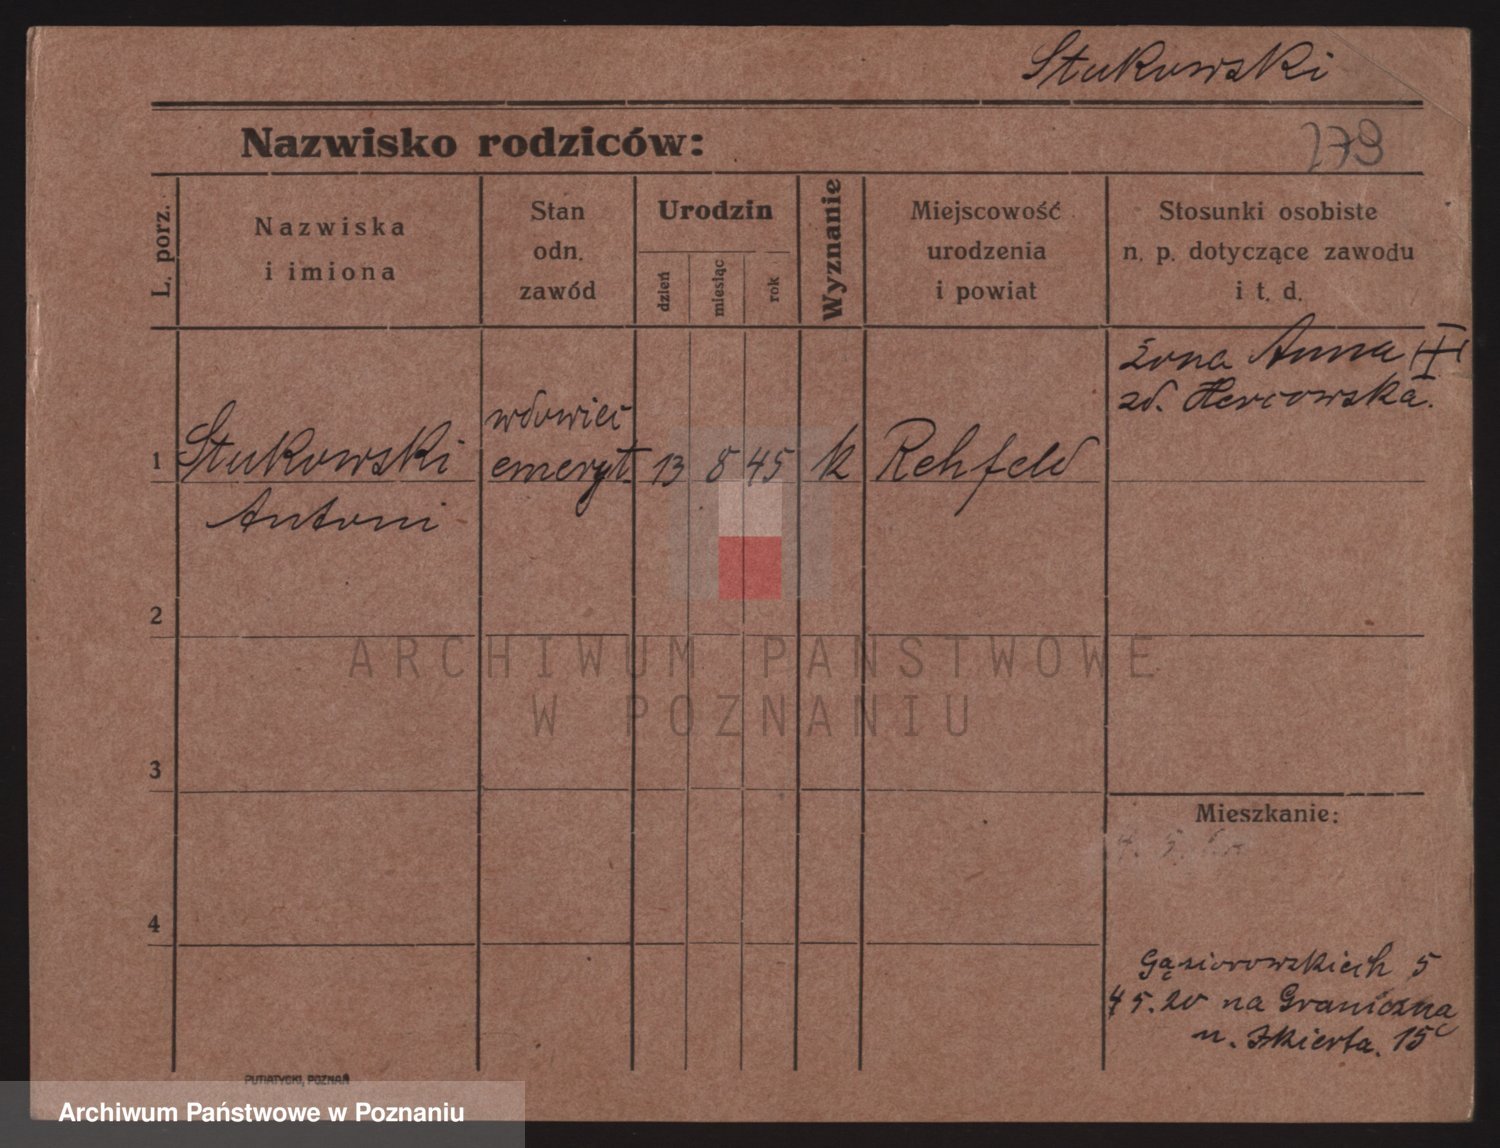 Stukowski
Nazwisko rodziców:
279
L. porz.
Nazwiska
i imiona
Stan
odn.
zawód
Urodzin
dzień
miesiąc
rok
Wyznanie
Miejscowość
urodzenia
i powiat
Stosunki osobiste
n. p. dotyczące zawodu
i t. d.
żona Anna
zd. Hercowska.
wdowiec
1 Stukowski emeryt. 13 8 45 k Rehfeld
Antoni
2
ARCHIWUM PAŃSTWOWE
W POZNANIU
3
Mieszkanie:
4
Gąsiorowskich 5
4 5. 20 na Graniczna
u. Skierta. 15c
PUTIATYCKI, POZNAŃ
Archiwum Państwowe w Poznaniu